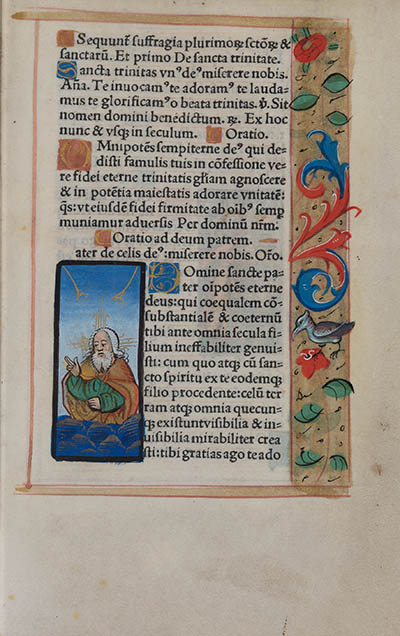 Sequunt̃ suffragia plurimoꝝ sctõꝝ &
sanctarũ. Et primo De sancta trinitate.
Sancta trinitas vn⁹ de⁹ miserere nobis.
Aña. Te inuocam⁹ te adoram⁹ te lauda-
mus te glorificam⁹ o beata trinitas. ℣. Sit
nomen domini benedictum. ℟. Ex hoc
nunc & vsqꝫ in seculum. Oratio.
OMnipotẽs sempiterne de⁹ qui de-
disti famulis tuis in cõfessione ve-
re fidei eterne trinitatis gl̃iam agnoscere
& in potẽtia maiestatis adorare vnitatẽ:
q̃s: vt eiusdẽ fidei firmitate ab oib⁹ semp
muniamur aduersis Per dominũ nr̃m.
Oratio ad deum patrem.
ater de celis de⁹: miserere nobis. Oŕo.
DOmine sancte pa-
ter oĩpotẽs eterne
deus: qui coequalem cõ-
substantialẽ & coeternũ
tibi ante omnia secula fi-
lium ineffabiliter genui-
sti: cum quo atqꝫ cũ san-
cto spiritu ex te eodemqꝫ
filio procedente: celũ ter-
ram atqꝫ omnia quecun-
qꝫ existunt visibilia & in-
uisibilia mirabiliter crea
sti: tibi gratias ago te ado